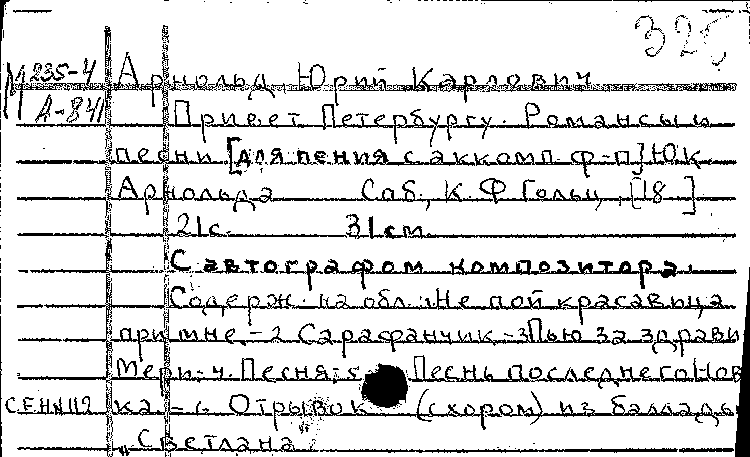 325
М 235-4 Арнольд, Юрий Карлович
А-841 Привет Петербургу. Романсы и
песни [для пения с аккомп. ф-п] Ю.К.
Арнольда Спб., К.Ф. Гольц, [18 ]
21с. 31см.
С автографом композитора.
Содерж. на обл.: Не пой красавица
при мне.-2 Сарафанчик-3Пью за здрави
Мери.-4. Песня;-5. Песнь последнего Нов
ка.-6. Отрывок (с хором) из баллады
„Светлана